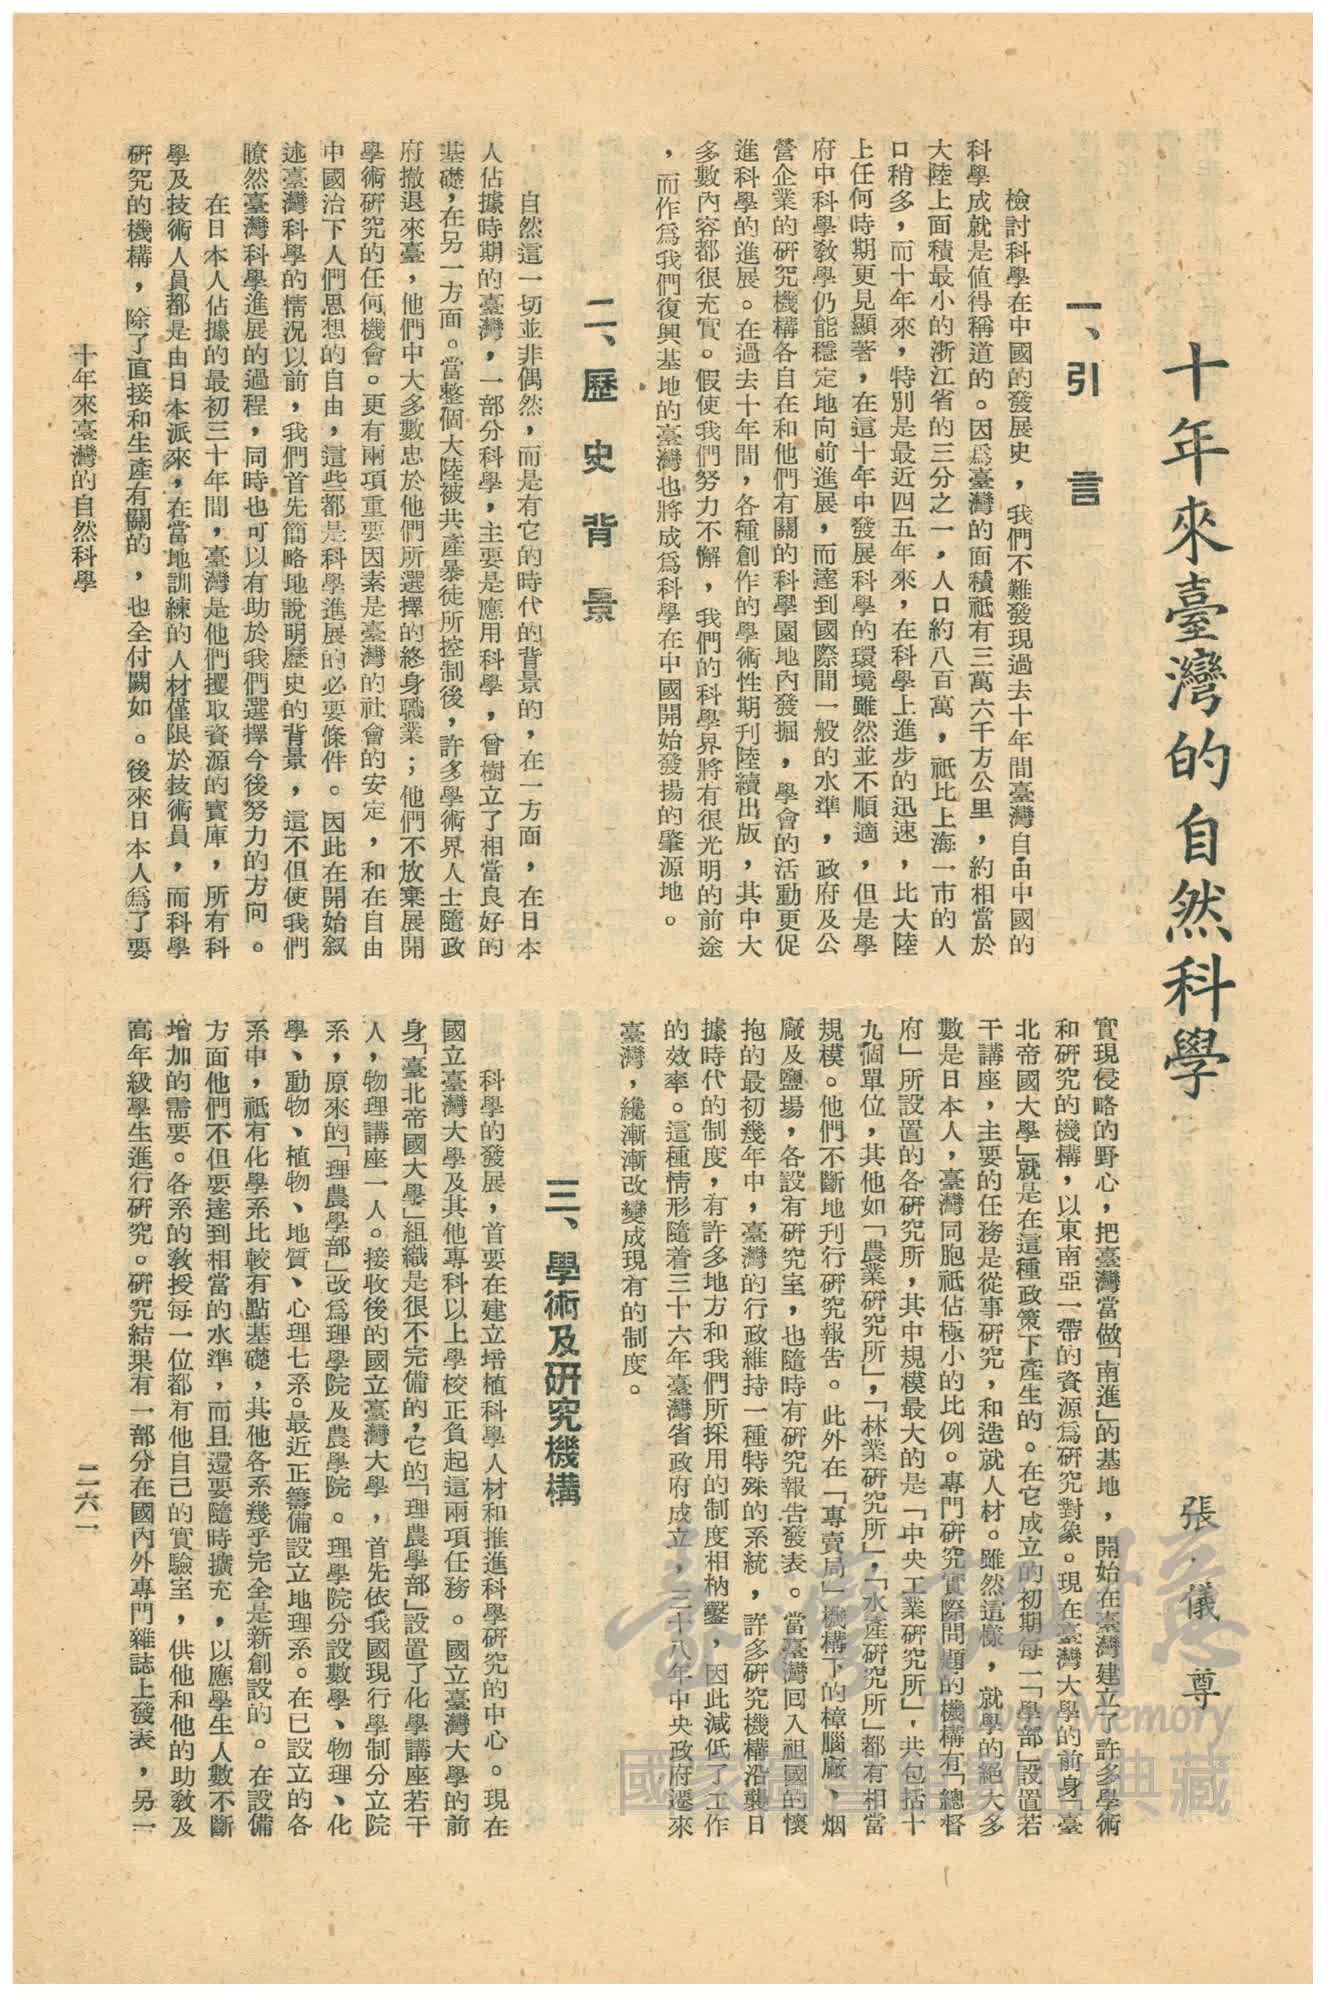 十年來臺灣的自然科學
張儀尊
一、引言
檢討科學在中國的發展史，我們不難發現過去十年間臺灣自由中國的
科學成就是值得稱道的。因爲臺灣的面積祇有三萬六千方公里，約相當於
大陸上面積最小的浙江省的三分之一，人口約八百萬，祇比上海一市的人
口稍多，而十年來，特別是最近四五年來，在科學上進步的迅速，比大陸
上任何時期更見顯著，在這十年中發展科學的環境雖然並不順適，但是學
府中科學教學仍能穩定地向前進展，而達到國際間一般的水準，政府及公
營企業的研究機構各自在和他們有關的科學園地內發掘，學會的活動更促
進科學的進展。在過去十年間，各種創作的學術性期刊陸續出版，其中大
多數內容都很充實。假使我們努力不懈，我們的科學界將有很光明的前途
，而作爲我們復興基地的臺灣也將成爲科學在中國開始發揚的肇源地。
二、歷史背景
自然這一切並非偶然，而是有它的時代的背景的，在一方面，在日本
人佔據時期的臺灣，一部分科學，主要是應用科學，曾樹立了相當良好的
基礎，在另一方面。當整個大陸被共產暴徒所控制後，許多學術界人士隨政
府撤退來臺，他們中大多數忠於他們所選擇的終身職業；他們不放棄展開
學術研究的任何機會。更有兩項重要因素是臺灣的社會的安定，和在自由
中國治下人們思想的自由，這些都是科學進展的必要條件。因此在開始敍
述臺灣科學的情況以前，我們首先簡略地說明歷史的背景，這不但使我們
瞭然臺灣科學進展的過程，同時也可以有助於我們選擇今後努力的方向。
在日本人佔據的最初三十年間，臺灣是他們攫取資源的寶庫，所有科
學及技術人員都是由日本派來，在當地訓練的人材僅限於技術員，而科學
研究的機構，除了直接和生產有關的，也全付闕如。後來日本人爲了要
實現侵略的野心，把臺灣當做「南進」的基地，開始在臺灣建立了許多學術
和研究的機構，以東南亞一帶的資源爲研究對象。現在臺灣大學的前身「臺
北帝國大學」就是在這種政策下產生的。在它成立的初期每一「學部」設置若
干講座，主要的任務是從事研究，和造就人材。雖然這樣，就學的絕大多
數是日本人，臺灣同胞祇佔極小的比例。專門研究實際問題的機構有「總督
府」所設置的各研究所，其中規模最大的是「中央工業研究所」，共包括十
九個單位，其他如「農業研究所」，「林業研究所」，「水產研究所」都有相當
規模。他們不斷地刊行研究報告。此外在「專賣局」機構下的樟腦廠、烟
廠及鹽場，各設有研究室，也隨時有研究報告發表。當臺灣囘入祖國的懷
抱的最初幾年中，臺灣的行政維持一種特殊的系統，許多研究機構沿襲日
據時代的制度，有許多地方和我們所採用的制度相枘鑿，因此減低了工作
的效率。這種情形隨着三十六年臺灣省政府成立，三十八年中央政府遷來
臺灣，纔漸漸改變成現有的制度。
三、學術及研究機構
科學的發展，首要在建立培植科學人材和推進科學研究的中心。現在
國立臺灣大學及其他專科以上學校正負起這兩項任務。國立臺灣大學的前
身「臺北帝國大學」組織是很不完備的，它的「理農學部」設置了化學講座若干
人，物理講座一人。接收後的國立臺灣大學，首先依我國現行學制分立院
系，原來的「理農學部」改爲理學院及農學院。理學院分設數學、物理、化
學、動物、植物、地質、心理七系。最近正籌備設立地理系。在已設立的各
系中，祇有化學系比較有點基礎，其他各系幾乎完全是新創設的。在設備
方面他們不但要達到相當的水準，而且還要隨時擴充，以應學生人數不斷
增加的需要。各系的教授每一位都有他自己的實驗室，供他和他的助教及
高年級學生進行研究。研究結果有一部分在國內外專門雜誌上發表，另一
十年來臺灣的自然科學
二六一
臺灣記憶
Taiwan Memory
國家圖書館數位典藏